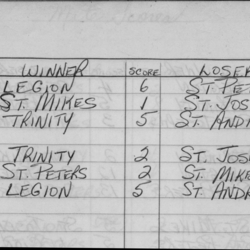 WINNER SCORE LOSER
LEGION 6 ST. PET
ST. MIKES 1 ST. JOS
TRINITY 5 ST. ANDR
TRINITY 2 ST. JOS
ST. PETERS 2 ST. MIK
LEGION 5 ST. ANDR